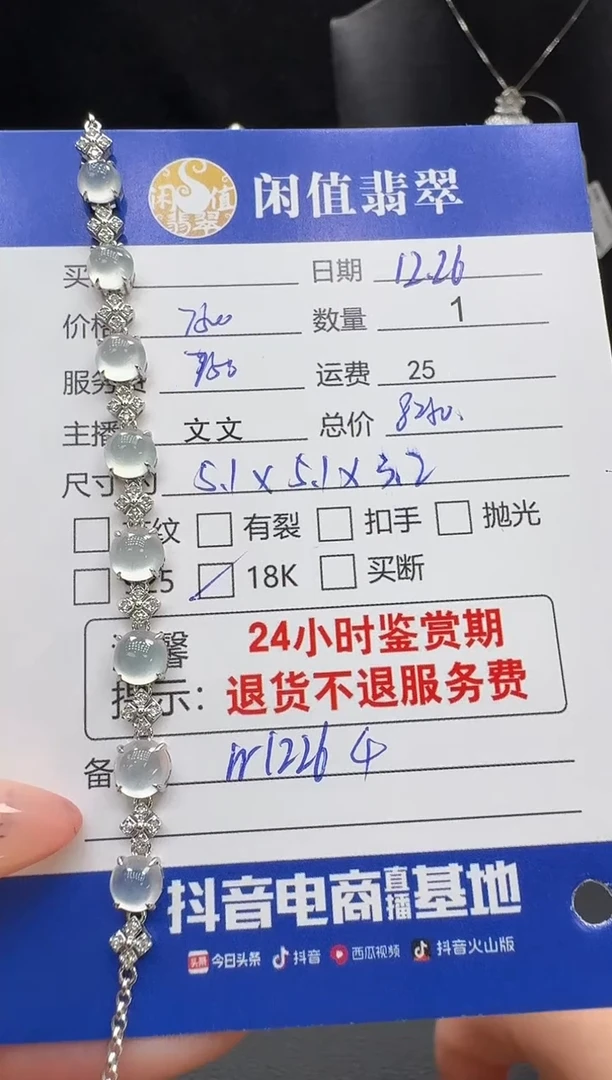 闲值翡翠
闲值翡翠
买 日期 12.26
价格 7800 数量 1
服务 运费 25
主播 文文 总价
尺寸 5.1 x 5.1 x 3.2
纹 有裂 扣手 抛光
18K 买断
馨 24小时鉴赏期
提示: 退货不退服务费
备
抖音电商直播基地
头条 今日头条 抖音 西瓜视频 抖音火山版